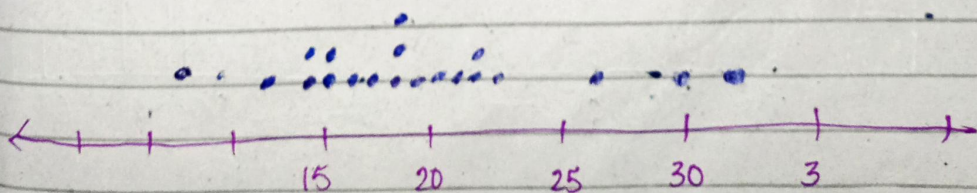 15 20 25 30 3